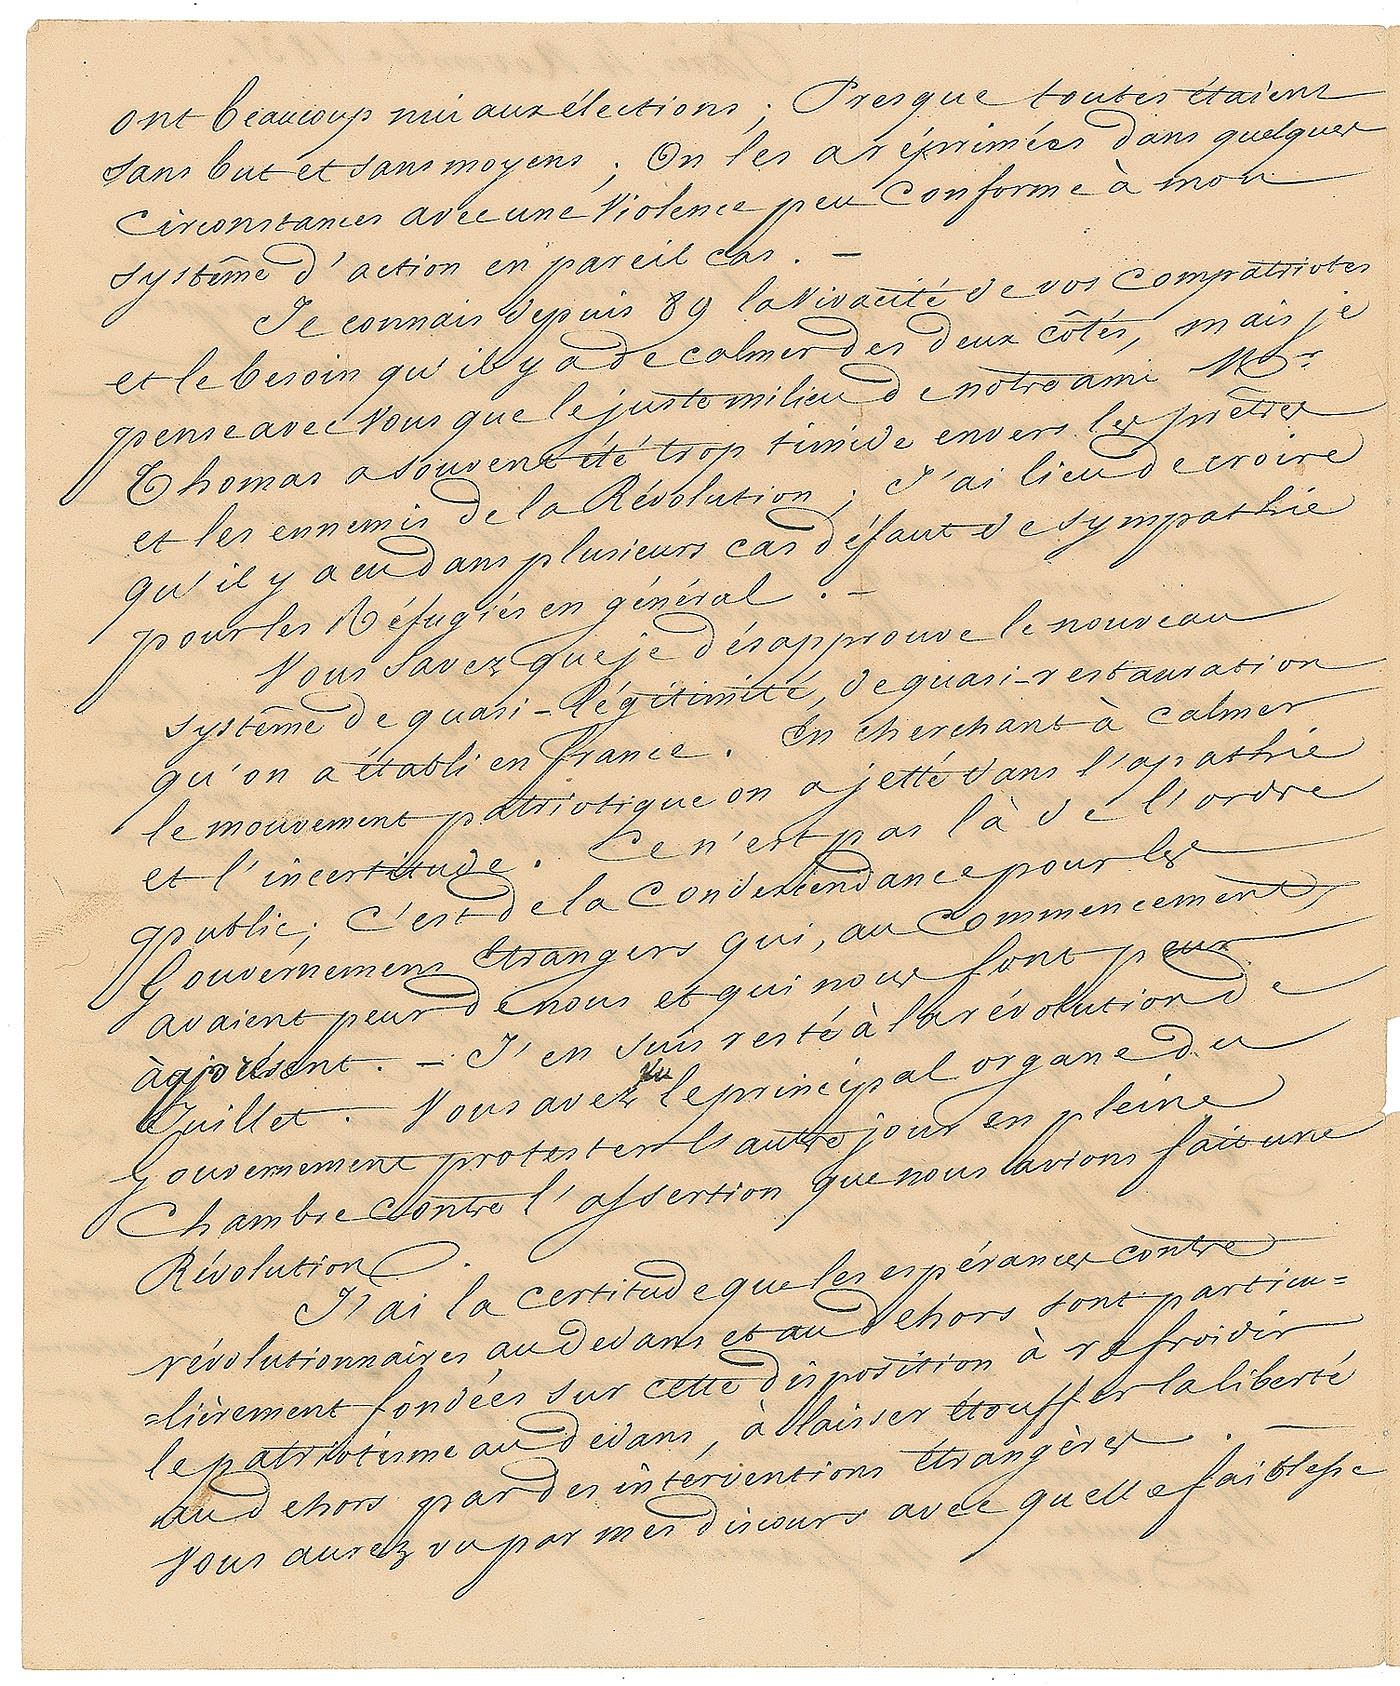 ont beaucoup nui aux élections ; Presque toutes étaient
sans but et sans moyens ; On les a réprimées dans quelques
circonstances avec une violence peu conforme à mon
système d'action en pareil cas . —
Je connais depuis 89 la vivacité de vos compatriotes
et le besoin qu'il y a de calmer des deux côtés, mais je
pense avec vous que le juste milieu de notre ami Mr
Thomas a souvent été trop timide envers les prêtres
et les ennemis de la Révolution ; J'ai lieu de croire
qu'il y a eu dans plusieurs cas défaut de sympathie
pour les Réfugiés en général . —
Vous savez que je désapprouve le nouveau
système de quasi-légitimité, de quasi-restauration
qu'on a établi en france . En cherchant à calmer
le mouvement patriotique on a jetté dans l'apathie
et l'incertitude . Ce n'est pas là de l'ordre
public ; C'est de la condescendance pour les
Gouvernemens Etrangers qui, au commencement,
avaient peur de nous et qui nous font peur
à présent . — J'en suis resté à la révolution de
Juillet . Vous avez vu le principal organe du
Gouvernement protester l'autre jour en pleine
Chambre contre l'assertion que nous avions fait une
Révolution .
J'ai la certitude que les espérances contre
révolutionnaires au dedans et au dehors sont particu=
=lièrement fondées sur cette disposition à refroidir
le patriotisme au dedans, à laisser étouffer la liberté
au dehors par des interventions étrangères . —
Vous aurez vu par mes discours avec quelle faiblesse